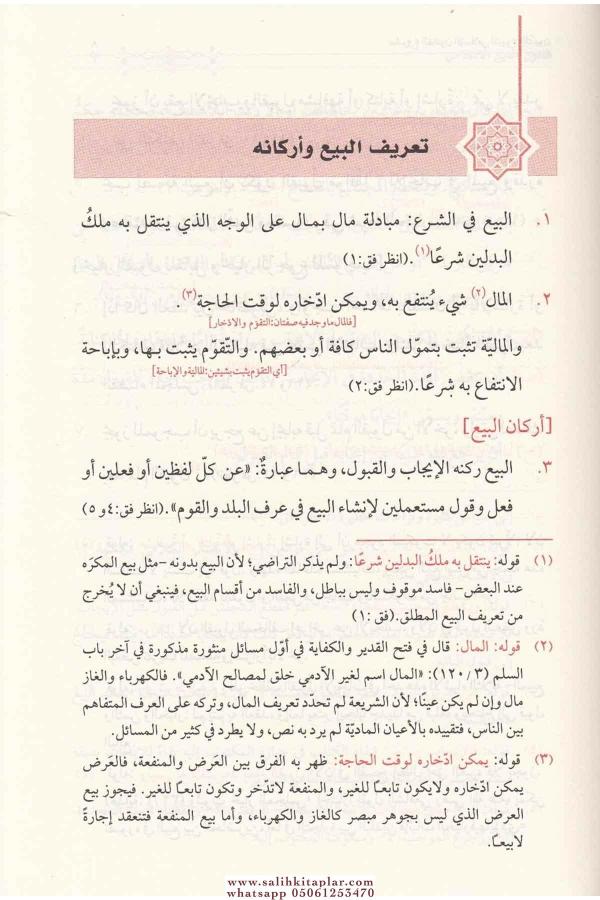 تعريف البيع وأركانه
١. البيع في الشرع: مبادلة مال بمال على الوجه الذي ينتقل به ملكُ
البدلين شرعًا(١).(انظر فق:١)
٢. المال(٢) شيء يُنتفع به، ويمكن ادّخاره لوقت الحاجة(٣).
[فالمال ما وجد فيه صفتان: التقوّم والادّخار]
والماليّة تثبت بتموّل الناس كافة أو بعضهم. والتّقوّم يثبت بها، وبإباحة
[أي التقوّم يثبت بشيئين: المالية والإباحة]
الانتفاع به شرعًا.(انظر فق:٢)
[أركان البيع]
٣. البيع ركنه الإيجاب والقبول، وهما عبارةٌ: «عن كلّ لفظين أو فعلين أو
فعل وقول مستعملين لإنشاء البيع في عرف البلد والقوم».(انظر فق:٤ و ٥)
(١) قوله: ينتقل به ملكُ البدلين شرعًا: ولم يذكر التراضي؛ لأن البيع بدونه -مثل بيع المكرَه
عند البعض- فاسد موقوف وليس بباطل، والفاسد من أقسام البيع، فينبغي أن لا يُخرج
من تعريف البيع المطلق.(فق :١)
(٢) قوله: المال: قال في فتح القدير والكفاية في أوّل مسائل منثورة مذكورة في آخر باب
السلم (٣/ ١٢٠): «المال اسم لغير الآدمي خلق لمصالح الآدمي». فالكهرباء والغاز
مال وإن لم يكن عينًا؛ لأن الشريعة لم تحدّد تعريف المال، وتركه على العرف المتفاهم
بين الناس، فتقييده بالأعيان الماديّة لم يرد به نص، ولا يطرد في كثير من المسائل.
(٣) قوله: يمكن ادّخاره لوقت الحاجة: ظهر به الفرق بين العَرض والمنفعة، فالعَرض
يمكن ادّخاره ولايكون تابعًا للغير، والمنفعة لاتدّخر وتكون تابعًا للغير. فيجوز بيع
العرض الذي ليس بجوهر مبصر كالغاز والكهرباء، وأما بيع المنفعة فتنعقد إجارةً
لابيعًا.
www.salihkitaplar.com
whatsapp 05061253470